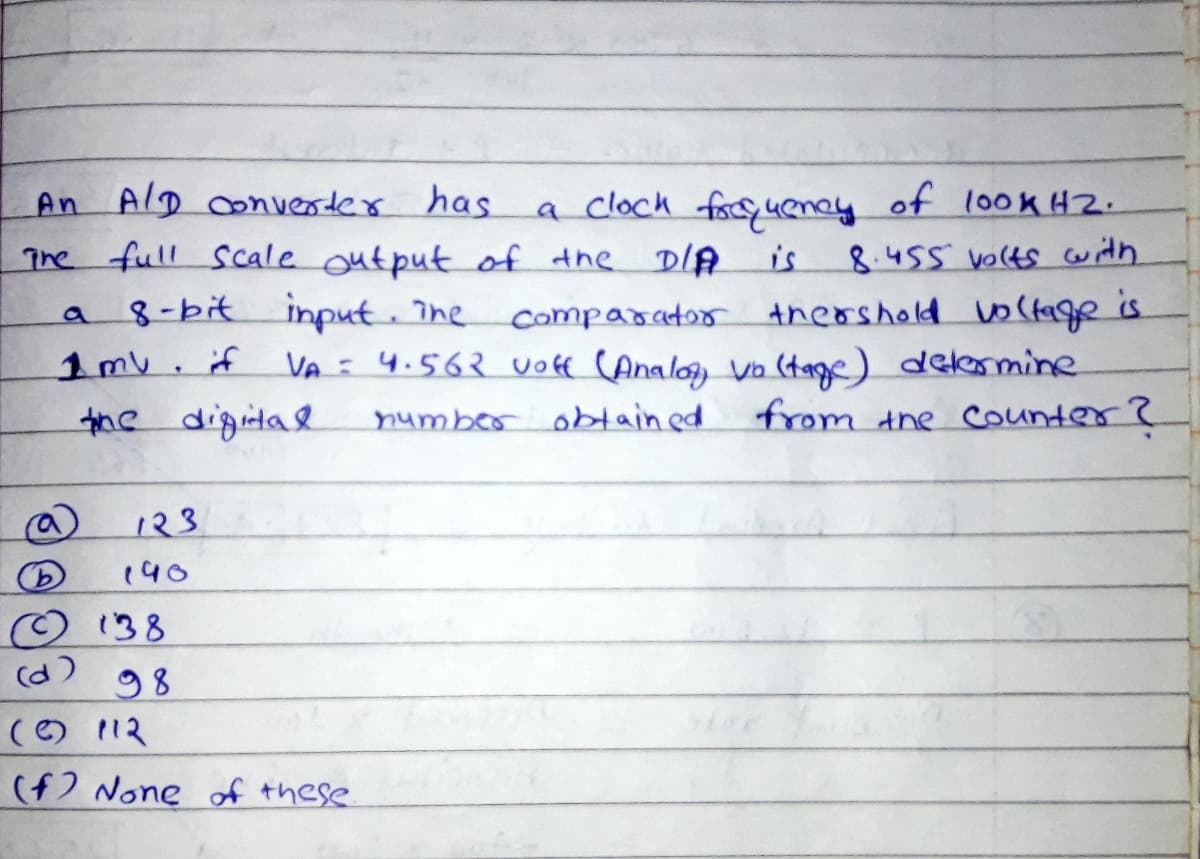 An A/D converter has a clock frequency of 100KHZ.
The full scale output of the D/A is 8.455 volts with
a 8-bit input. The comparator thershold voltage is
1mv. if VA = 4.562 vott (Analog voltage) determine
the digital number obtained from the counter?
(a) 123
(b) 140
(c) 138
(d) 98
(e) 112
(f) None of these.